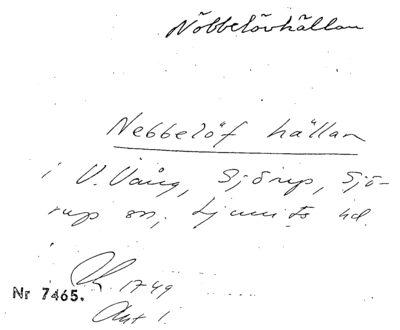 Nöbbelövhällan
Nebbelöf hällan
i V. Vång, Sjörup, Sjö-
rup sn, Ljunits hd.
1749
Nr 7465.
Akt 1.